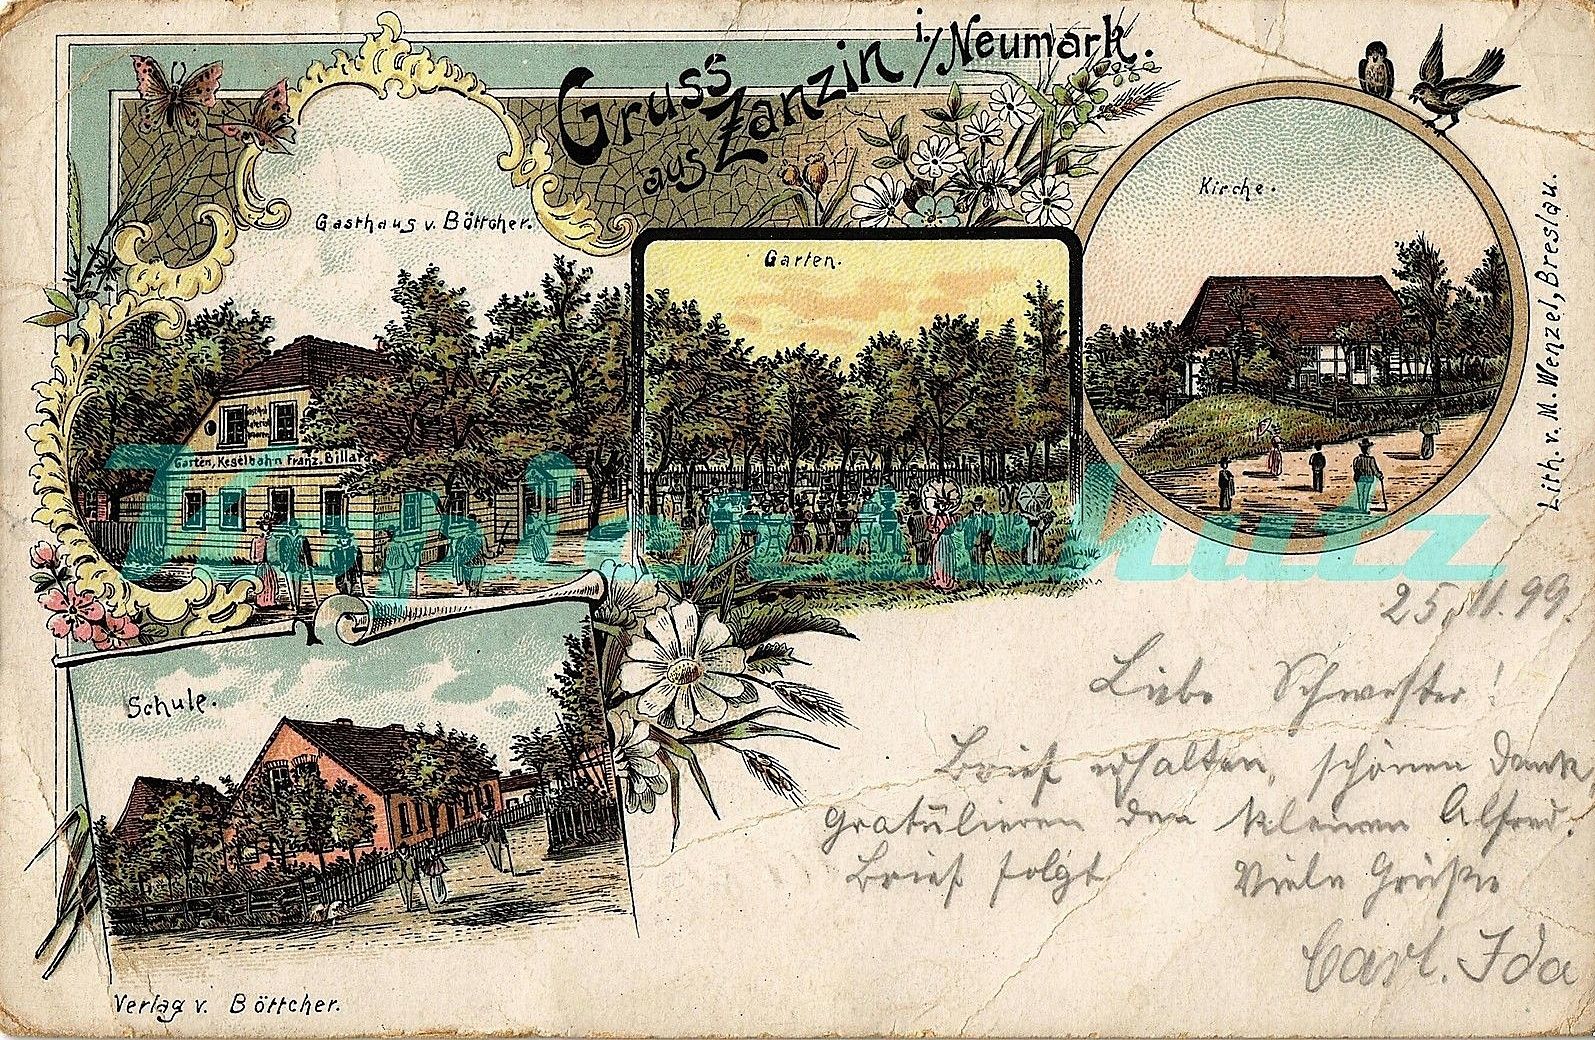 Gruss aus Zanzin i./Neumark.
Gasthaus v. Böttcher.
Garten.
Kirche.
Lith. v. M. Wenzel, Breslau.
Garten, Kegelbahn Franz. Billard
25.11.99.
Liebe Schwester!
Brief erhalten, schönen Dank
Gratulieren den kleinen Alfred.
Brief folgt Viele Grüße
Carl. Ida
Schule.
Verlag v. Böttcher.